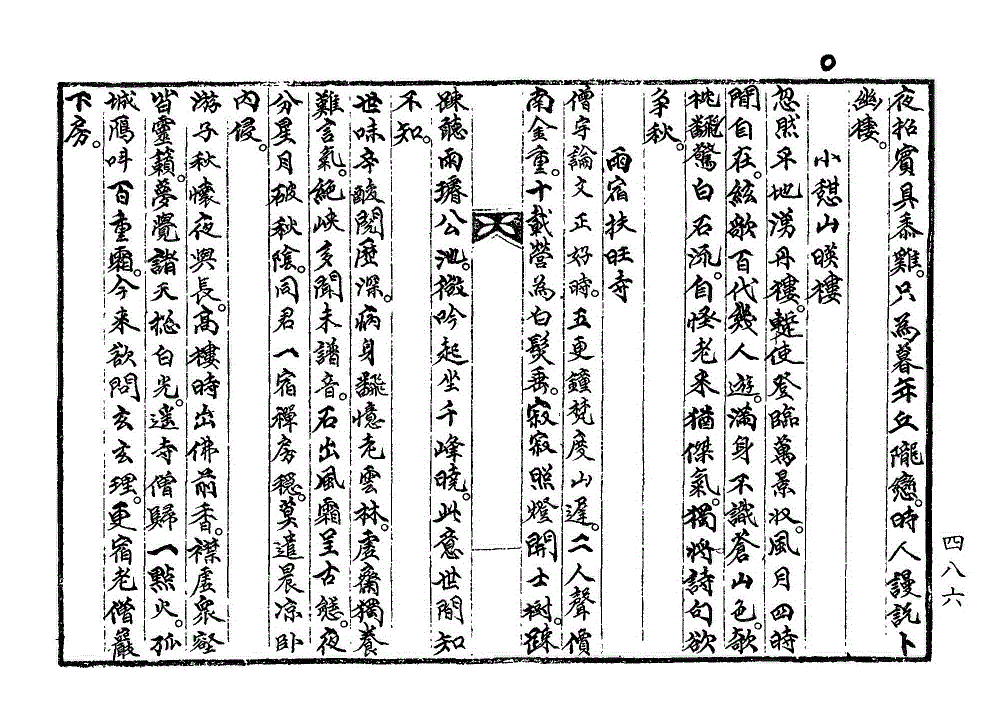 夜招賓具黍難。只為暮年丘隴戀。時人謾說卜
幽棲。
小憇山暎樓
忽然平地湧丹樓。蹔使登臨萬景收。風月四時
閒自在。絃歌百代幾人遊。滿身不識蒼山色。欹
枕飜驚白石流。自怪老來猶傑氣。獨將詩句欲
爭秋。
雨宿扶旺寺
僧宇論文正好時。五更鐘梵度山遲。二人聲價
南金重。十載營為白髮垂。寂寂照燈開士榭。踈
踈聽雨璠公池。微吟起坐千峰曉。此意世間知
不知。
世味辛酸閱歷深。病身飜憶老雲林。虛齋獨養
難言氣。絕峽多聞未譜音。石出風霜呈古態。夜
分星月破秋陰。同君一宿禪房穩。莫遣晨凉卧
內侵。
游子秋懷夜與長。高樓時出佛前香。襟虛眾壑
皆靈籟。夢覺諸天摠白光。遙寺僧歸一點火。孤
城鴈呌百重霜。今来欲問玄玄理。更宿老僧巖
下房。
四八六